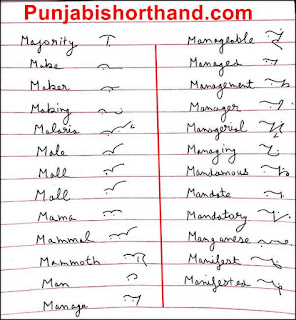 Punjabishorthand.com
Majority
Make
Maker
Making
Malaria
Male
Mall
Moll
Mama
Mammal
Mammoth
Man
Manage
Manageable
Managed
Management
Manager
Managerial
Managing
Mandamous
Mandate
Mandatory
Manganese
Manifest
Manifested